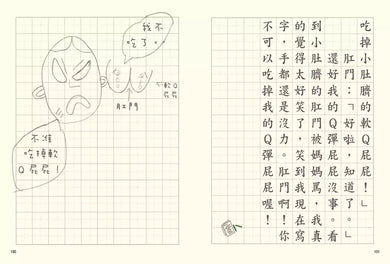 我不
吃了。
軟Q
屁屁
肛門
不准
吃掉軟
Q屁屁!
190
吃掉小肚臍的軟Q屁屁!」
肛門:「好啦,知道了。」
還好我的Q彈屁屁沒事。看
到小肚臍的肛門被媽媽罵,我真
的覺得太好笑了,笑到我現在寫
字,手都還是沒力。肛門啊!你
不可以吃掉我的Q彈屁屁喔!